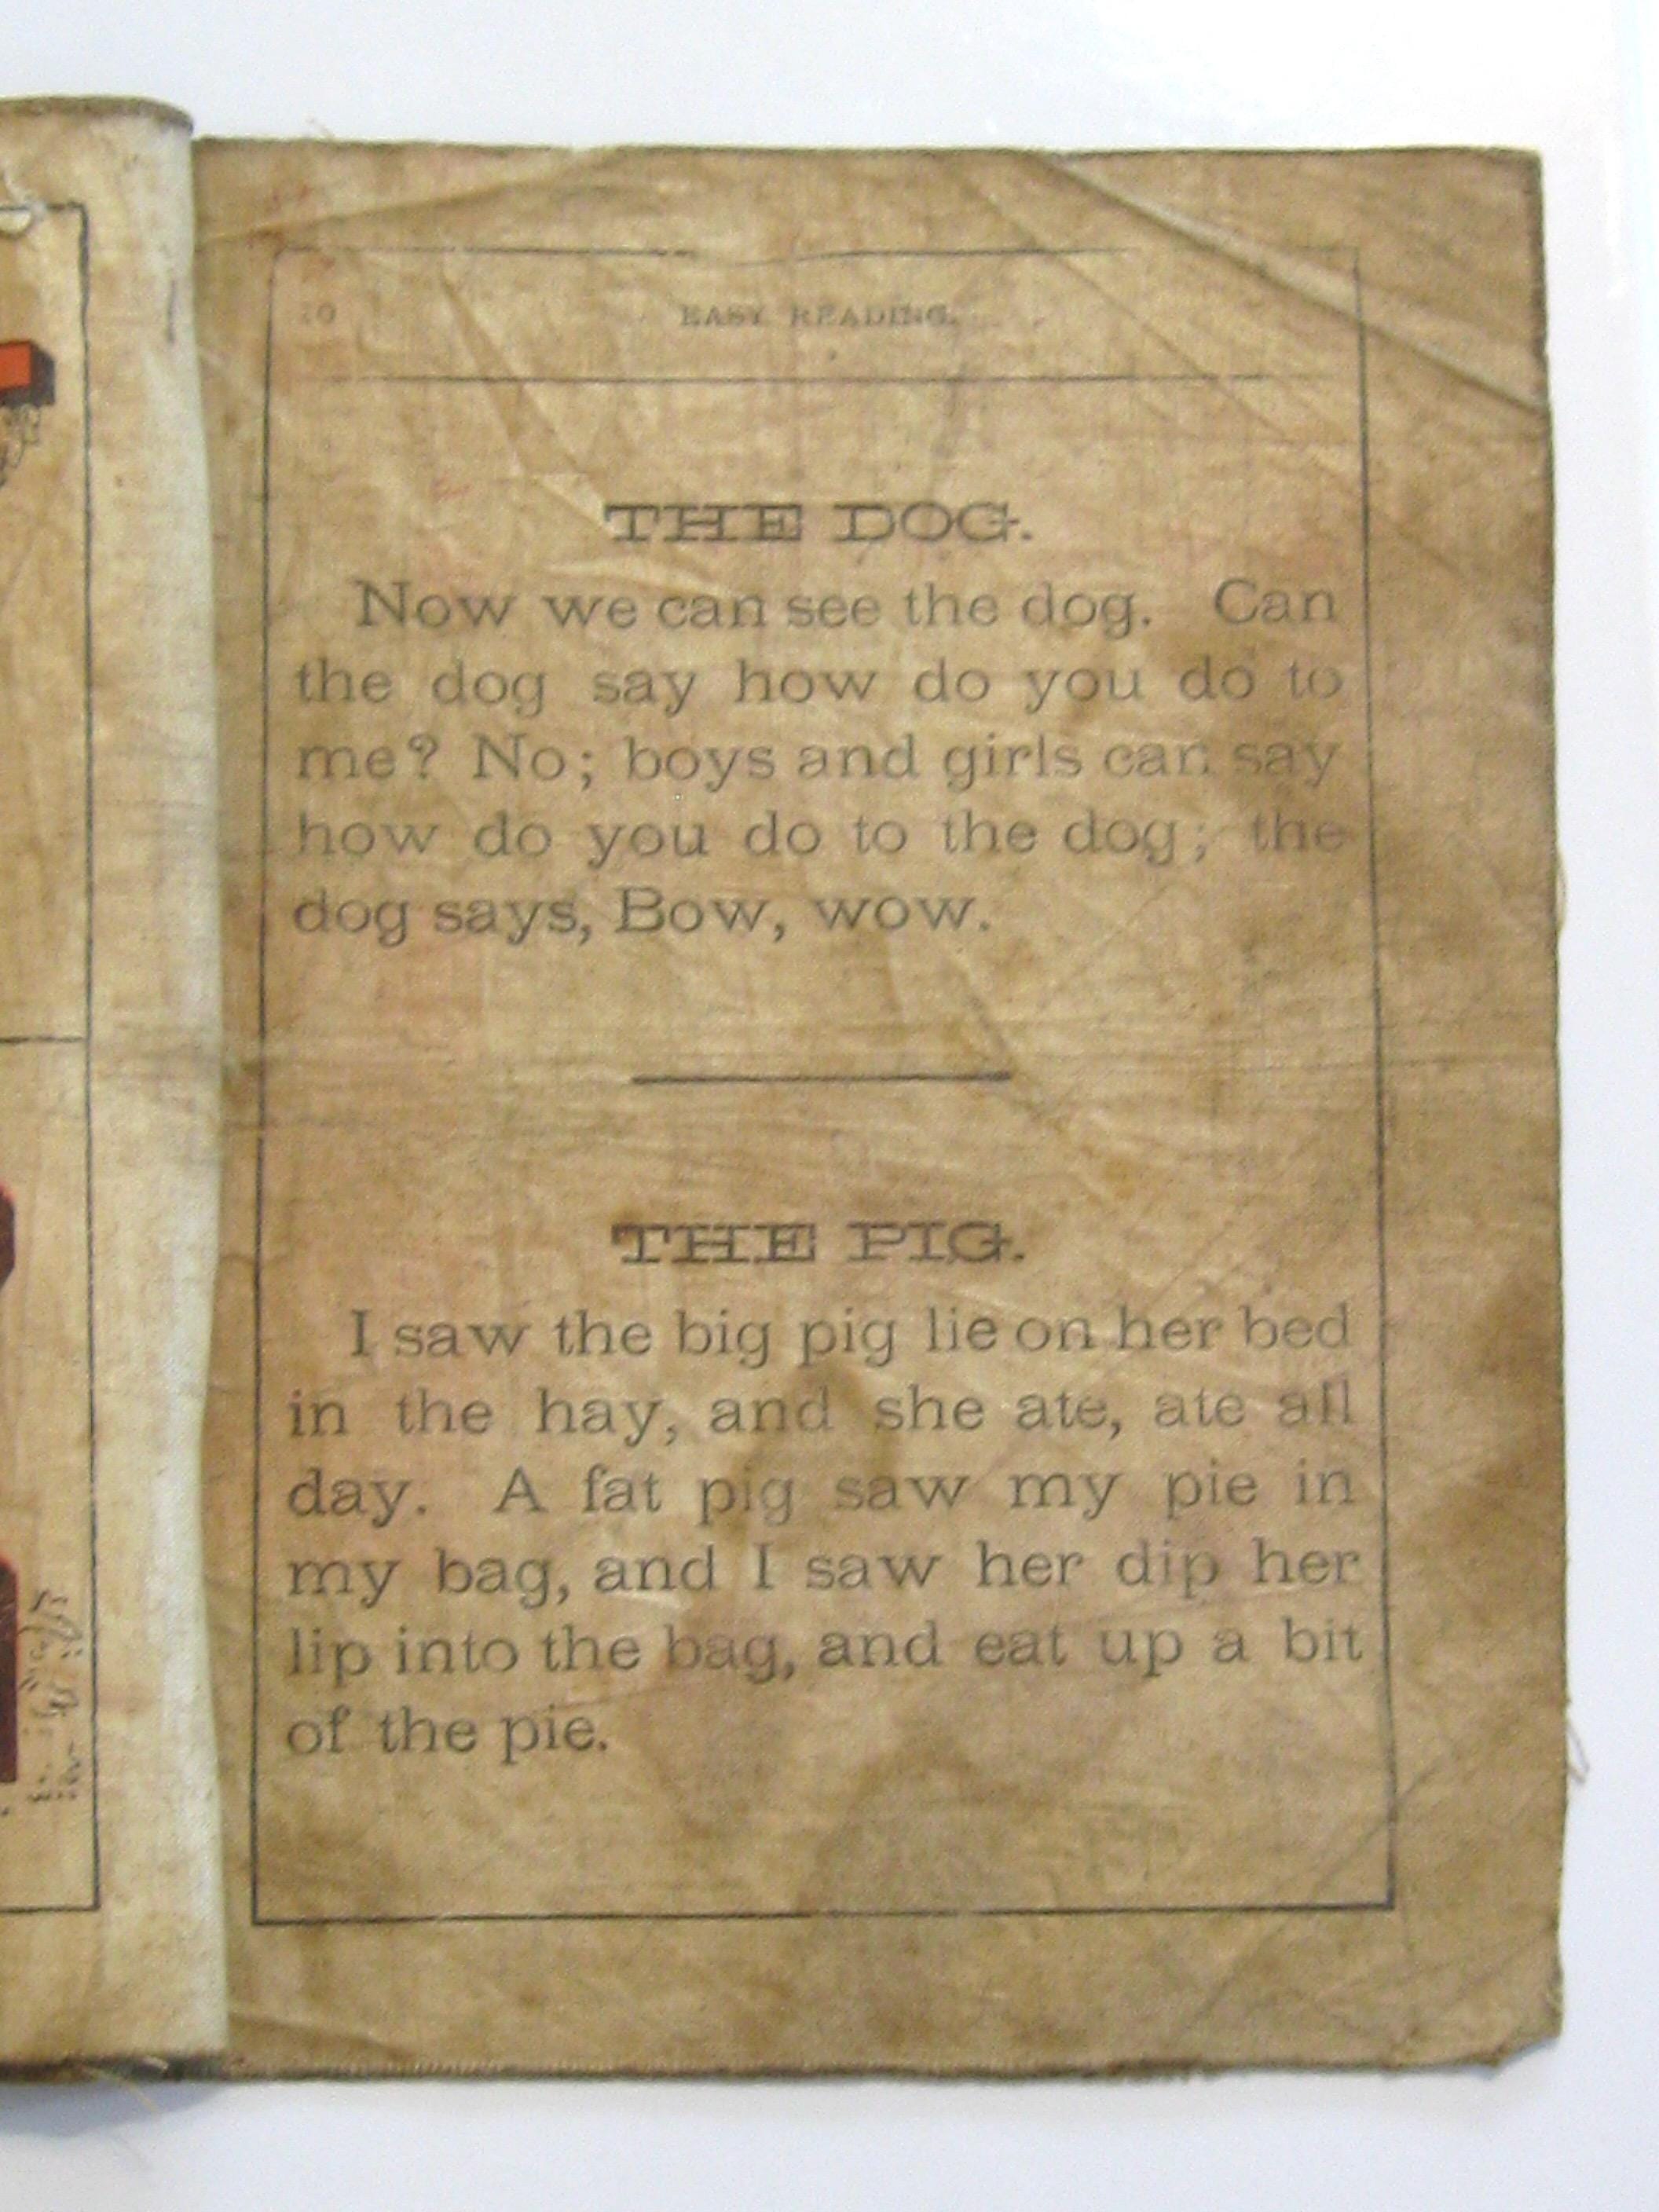 EASY READING.
THE DOG.
Now we can see the dog. Can
the dog say how do you do to
me? No; boys and girls can say
how do you do to the dog; the
dog says, Bow, wow.
THE PIG.
I saw the big pig lie on her bed
in the hay, and she ate, ate all
day. A fat pig saw my pie in
my bag, and I saw her dip her
lip into the bag, and eat up a bit
of the pie.